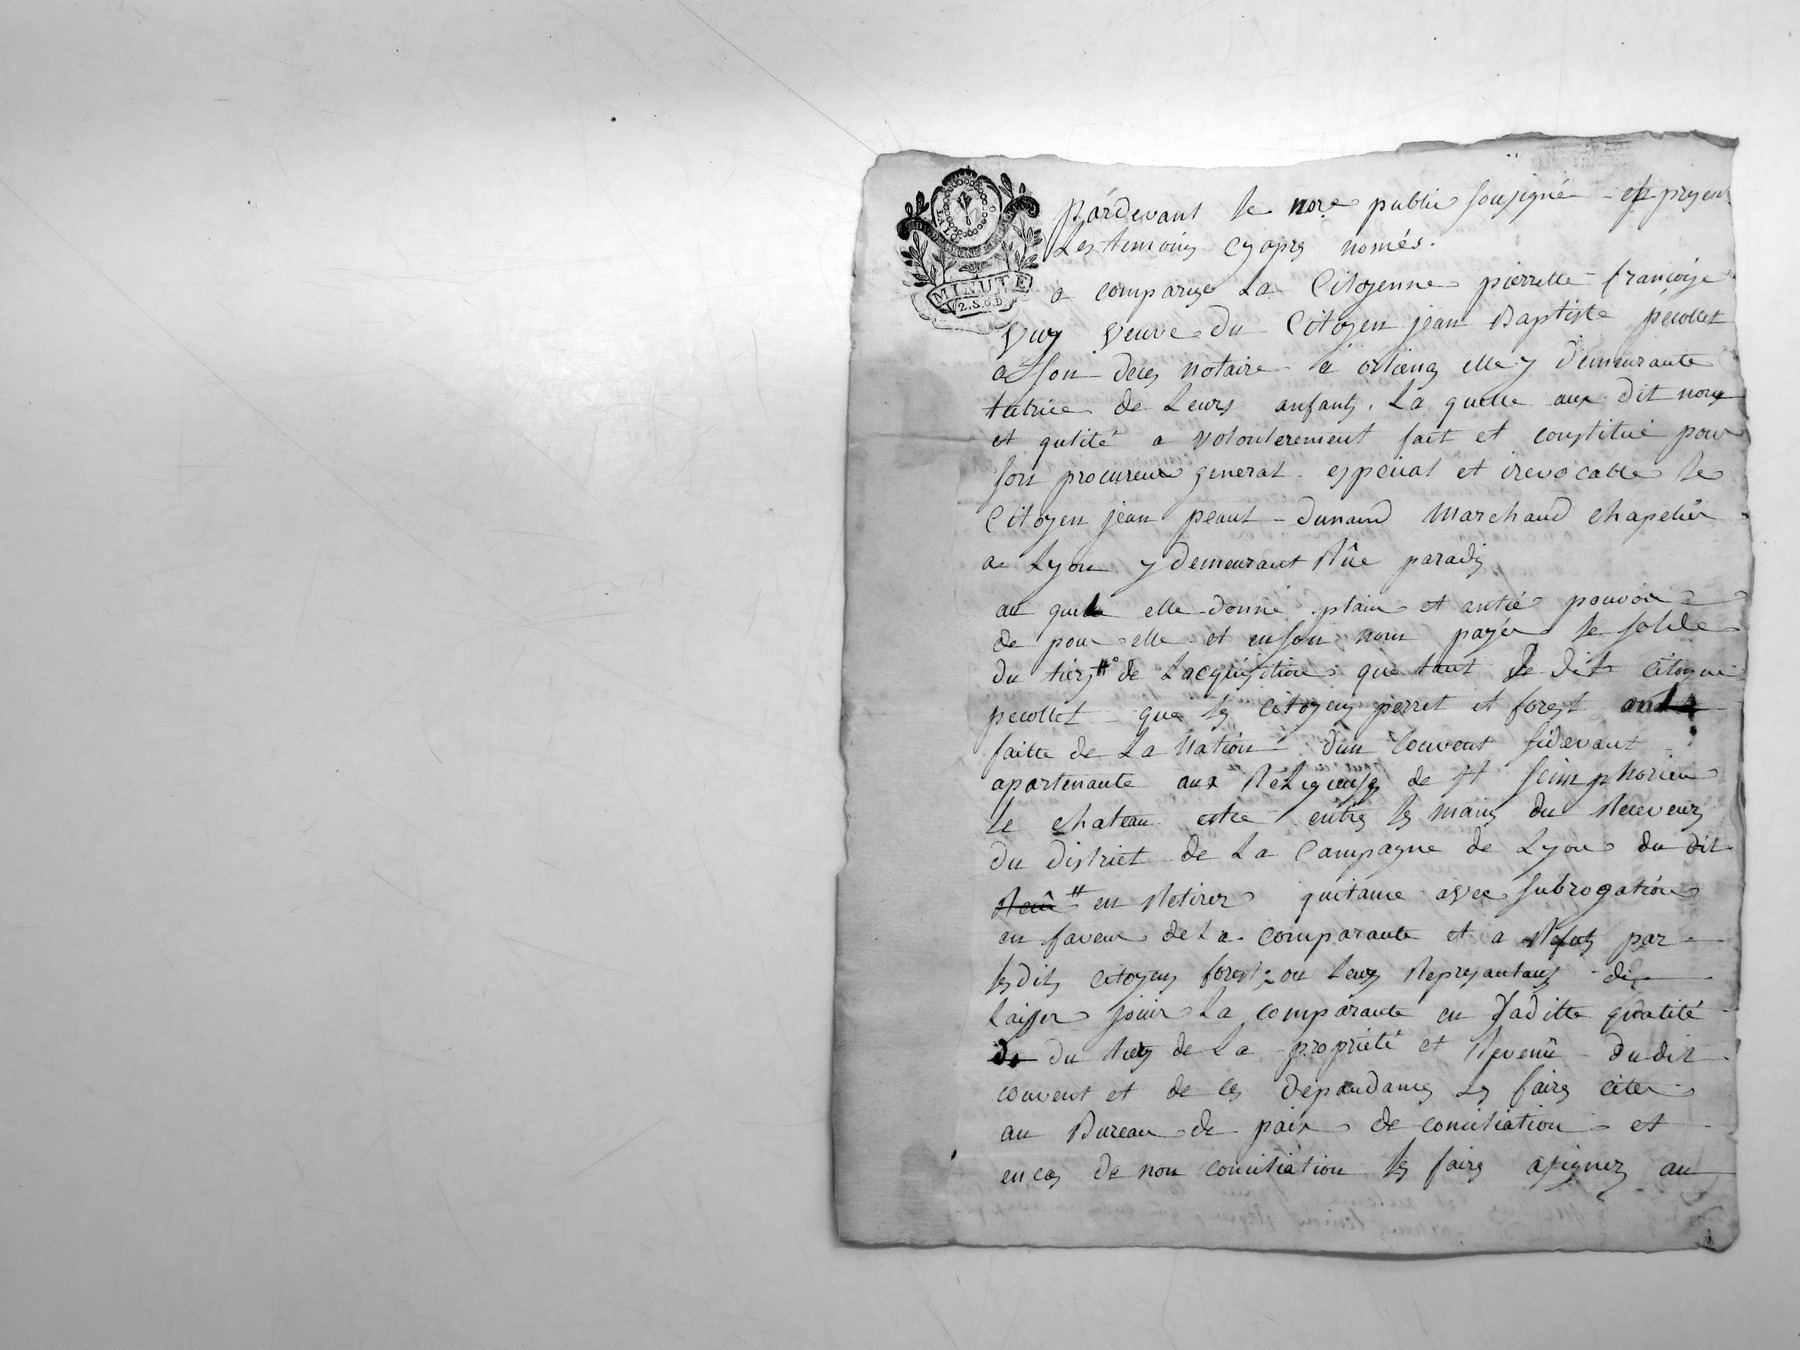 MINUTE
2. S. 6 D.
pardevant le nore public soussigné et presens
Les temoins cy apres només.
a comparue La Citoyenne pierrette françoise
Vuy Veuve du Citoyen jean Baptiste pecollet
a son deces notaire a orlienas elle y demeurante
tutrice de Leurs anfants. La quelle aux dit noms
et qulité a volonterement fait et constitué pour
son procureur general espesial et irevocable le
Citoyen jean peaut dunand Marchand chapelier
a Lyon y demeurant Rûe paradis
au quel elle donne plain et antié pouvoir
de pour elle et en son nom payér le solde
du tiers # de Lacquisition que tant le dit citoyen
pecollet que les citoyens perret et forest ont
faitte de La Nation d'un Couvent sidevant
apartenante aux Religieuses de St Seimphorien
le chateau estre entres les mains du Receveur
du District de La Campagne de Lyon du dit
# en Retirer quitance avec subrogation
en faveur de La comparante et a Refus par
lesdits citoyens forest ou Leurs Represantans de
Laisser jouir La comparante en saditte qualité
du tiers de La proprieté et Revenû dudit
couvent et de ces dépandances Les faires citer
au Bureau de paix de conciliation et
en cas de non conciliation les faires assigner au